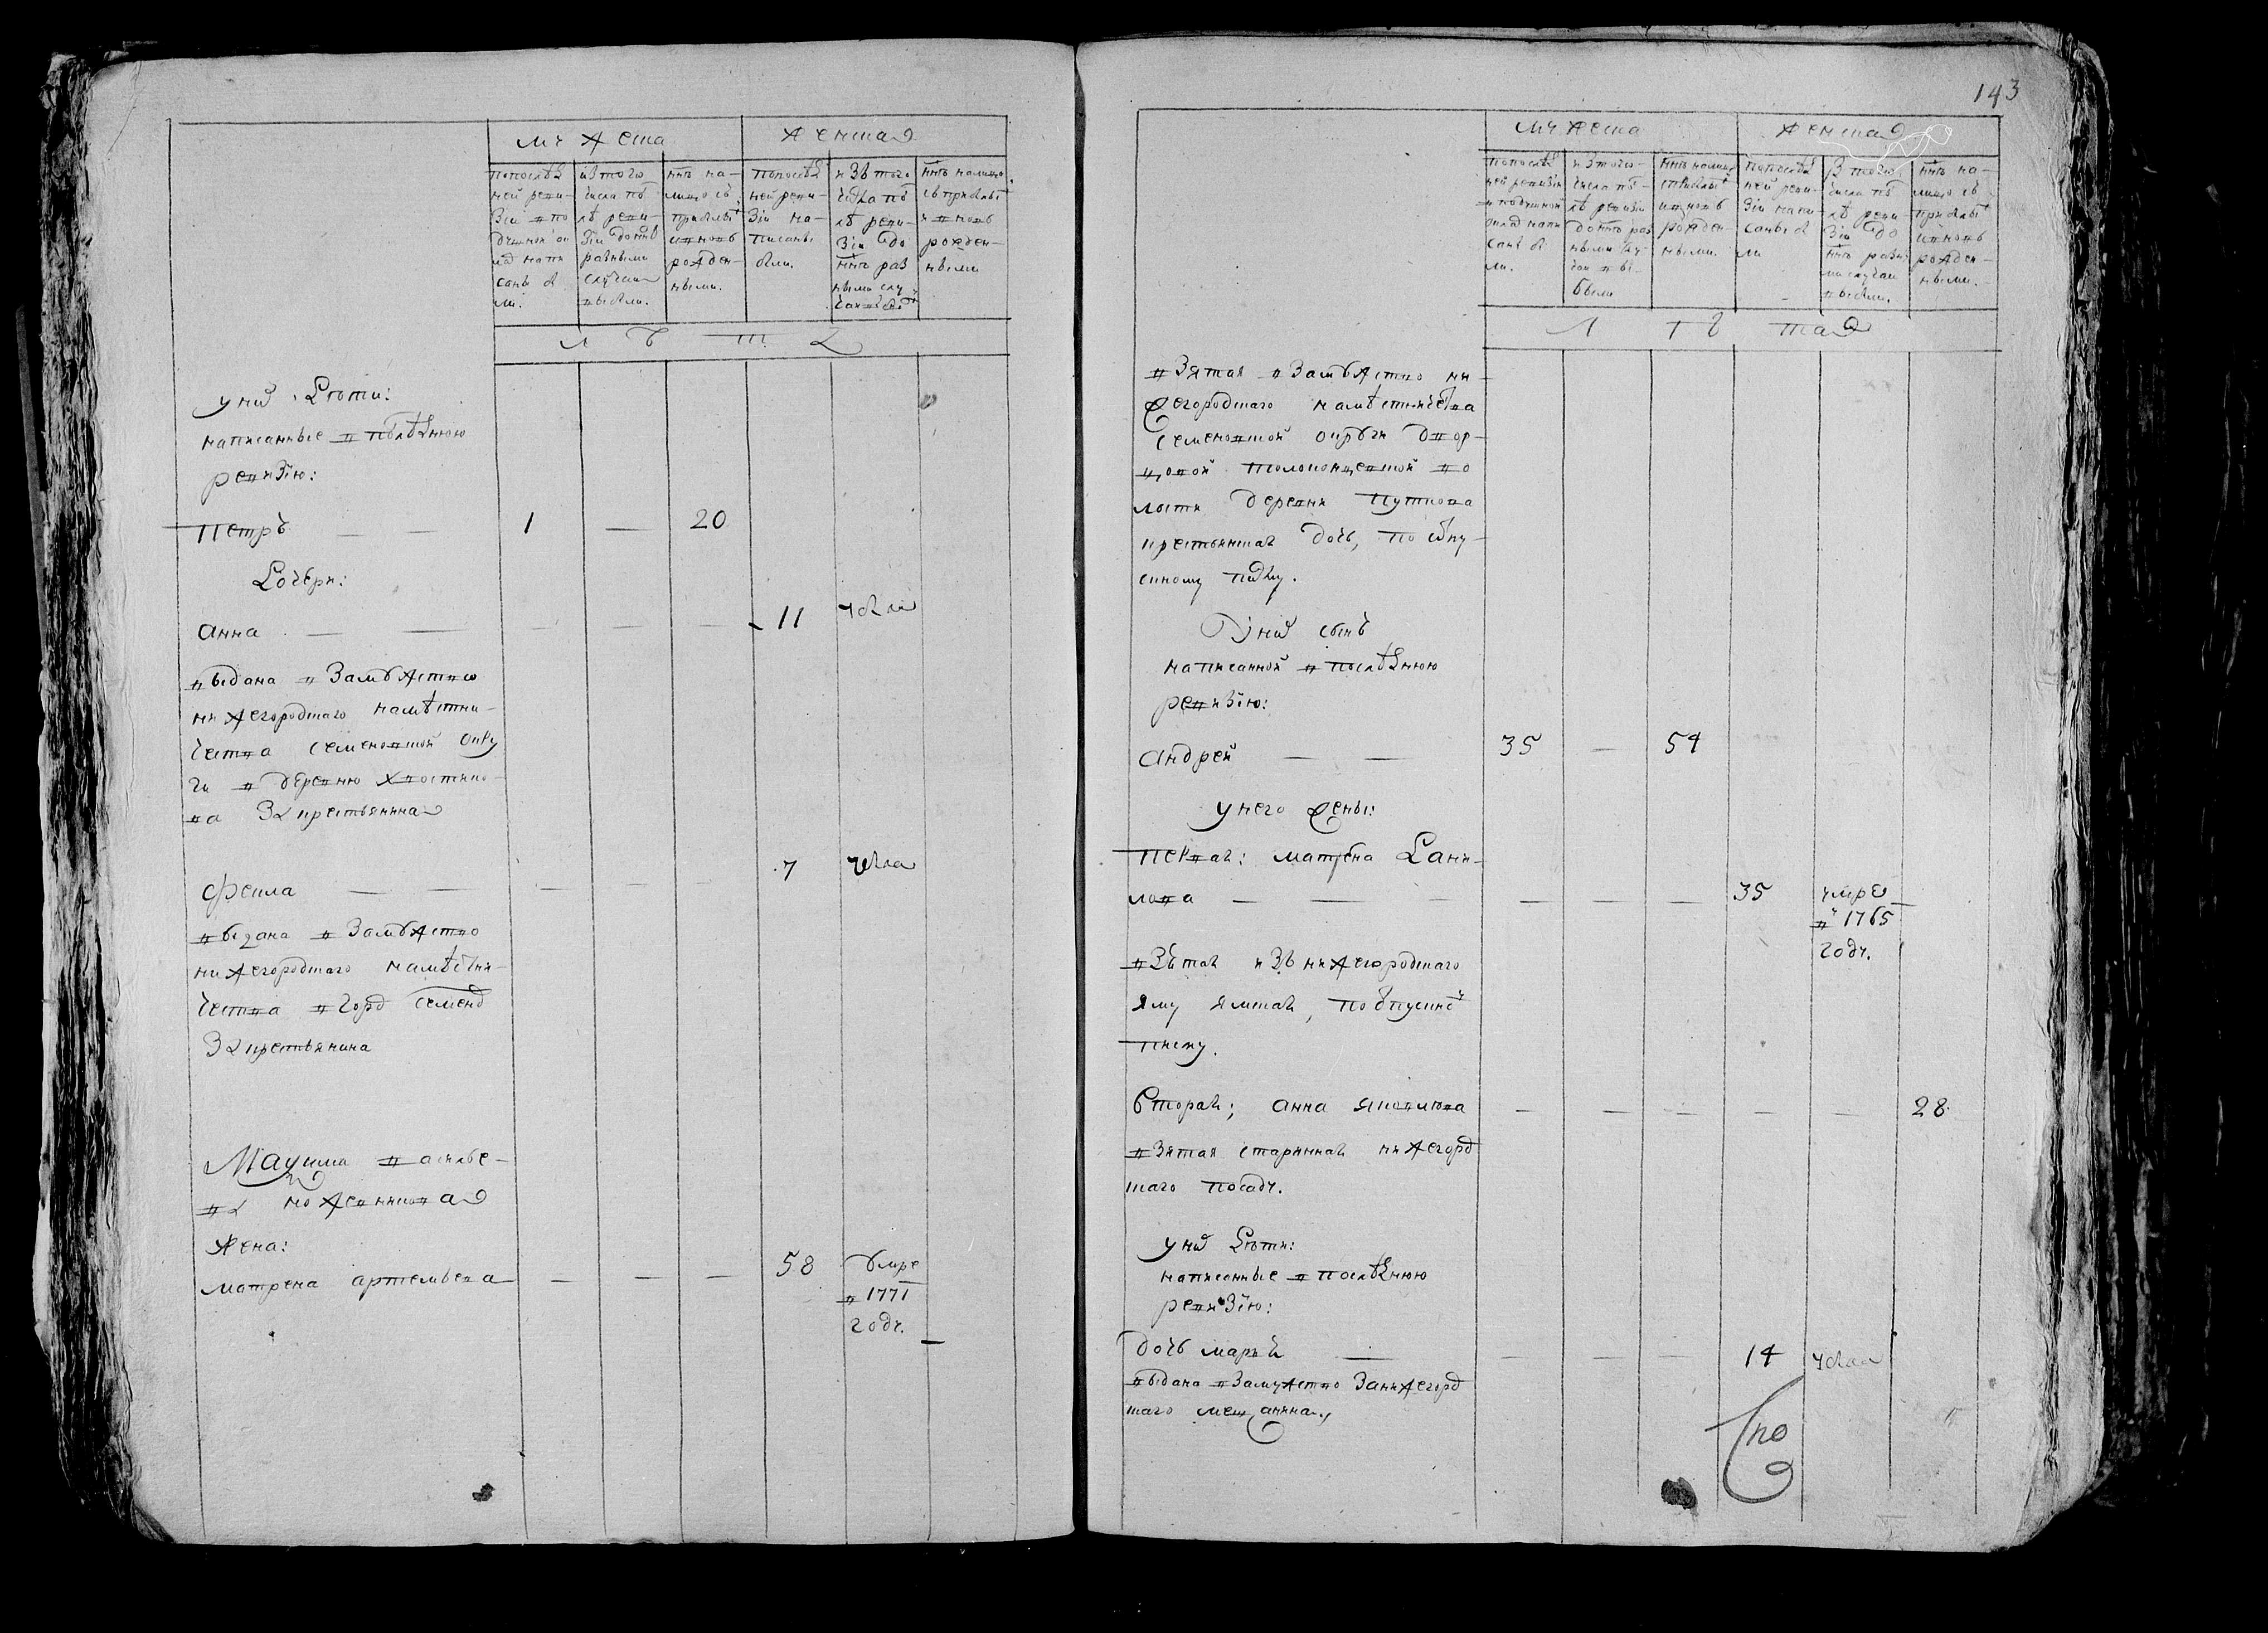 мужеска
женска
попослѣд
ней реви-
зіи и по
душной ок
лад напи
саны бы
ли.
изтого
числа по
слѣ реви
зіи до нне
разными
случаи
выбыли.
ннѣ на-
лицо съ
прибылы
и вновь
рожден-
ными.
попослѣд
ней реви-
зіи на-
писаны
были.
изъ того
числа по
слѣ реви-
зіи до
ннѣ раз
ными слу
чаи выбы
ннѣ налицо
съ прибылы
и вновь
рожден-
ными
л ѣ т а
у них дѣти:
написанные в послѣднюю
ревизію:
Петръ — — 1 — 20
дочери:
анна — — — — — 11 убыла
выдана в замужство
нижегородскаго намѣстни-
чества семеновской окру
ги в деревню хвостико-
ва за крестьянина
Фекла — — — — — 7 убыла
выдана в замужство
нижегородскаго намѣстни-
чества в город семенов
за крестьянина
Максима василье-
ва ноженникова
жена:
матрена артемьева — — — 58 умре
в 1771
году.
143
мужеска
женска
попослѣд
ней ревизіи
и подушной
оклад напи
саны бы
ли.
изтого-
числа по-
слѣ ревизіи
до ннѣ раз
ными слу
чаи вы-
были
ннѣ налицо
съ прибылы
и вновь
рожден-
ными.
попослѣд
ней реви-
зіи напи
саны бы
ли
из того
числа по
слѣ реви
зіи до
ннѣ разны
ми случаи
выбыли.
ннѣ на-
лицо съ
прибылы
и вновь
рожден-
ными.
л ѣ та
взятая в замужство ни-
жегородскаго намѣстничества
семеновской округи двор-
цовой толоконцевской во
лости деревни путкова
крестьянская дочь, по отпу-
скному писму.
У них сынъ
написанной в послѣднюю
ревизію:
андрей — — 35 — 54
у него жены:
первая: матрена дани-
лова — — — — — — 35 умре
в 1765
году.
взятая изъ нижегородскаго
яму ямская, по отпускно
писму.
вторая; анна яковлева — — — — — 28
взятая старинная нижегород
скаго посаду.
у них дѣти:
написанные в послѣднюю
ревизію:
дочь марья — — — — 14 убыла
выдана в замужство за нижегород
скаго мещанина.